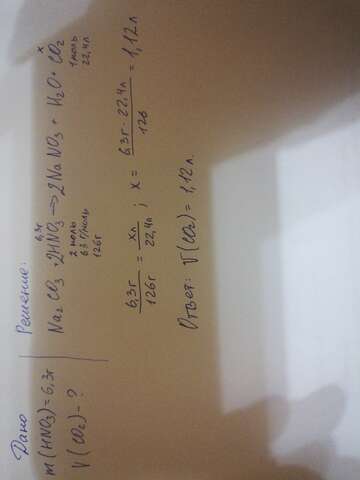 Дано
m(HNO₃)=6,3г
V(CO₂)-?
Решение:
6,3г x
Na₂CO₃+2HNO₃→2NaNO₃ + H₂O + CO₂
2 моль 1 моль
63 г/моль 22,4л
126г
6,3г/126г = xл/22,4л ; x = 6,3г · 22,4л/126 = 1,12л
Ответ: V(CO₂) = 1,12л.